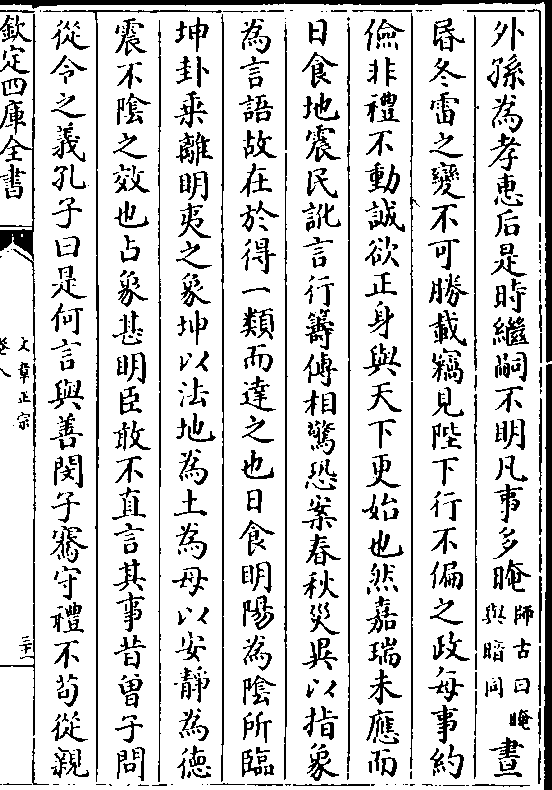 外孫為孝惠后是時繼嗣不明凡事多晻師古曰晻與暗同晝
昬冬雷之變不可勝載竊見陛下行不偏之政每事約
儉非禮不動誠欲正身與天下更始也然嘉瑞未應而
日食地震民訛言行籌傳相驚恐案春秋災異以指象
為言語故在於得一類而達之也日食明陽為陰所臨
坤卦乘離明夷之象坤以法地為土為母以安靜為徳
震不隂之效也占象甚明臣敢不直言其事昔曽子問
從令之義孔子曰是何言與善閔子騫守禮不茍從親
欽定四庫全書
文章正宗
卷八
三十一